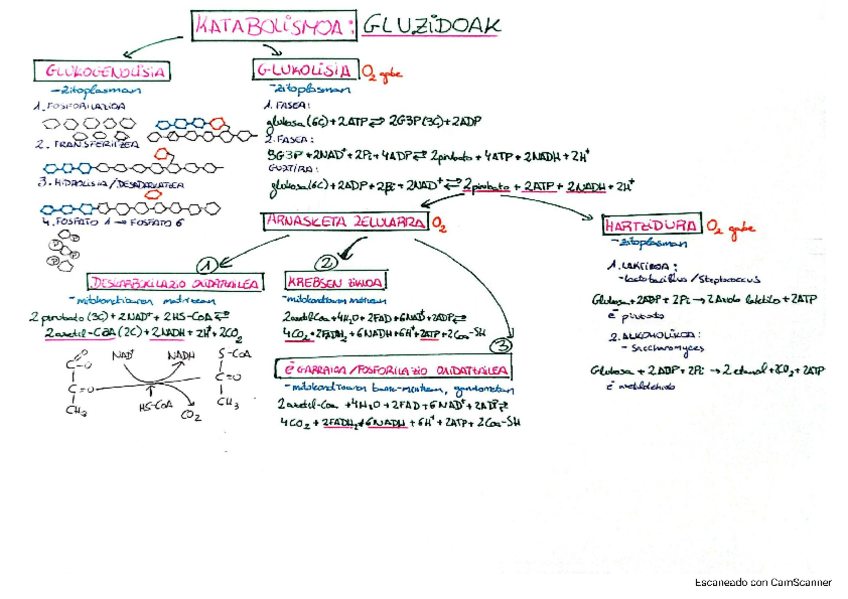 KATABOLISMOA: GLUZIDOAK
GLUKOGENOLISIA
→zitoplasman
1. FOSFORILAZIOA
2. TRANSFERITZEA
3. HIDROLISIA/DESADARKATZEA
4. FOSFATO 1 → FOSFATO 6
GLUKOLISIA O₂ gabe
→zitoplasman
1. FASEA:
glukosa (6C) + 2ATP ⇌ 2G3P (3C) + 2ADP
2. FASEA:
+ 2NAD⁺ + 2Pi + 4ADP ⇌ 2pirubato + 4ATP + 2NADH + 2H⁺
GUZTIRA:
glukosa (6C) + 2ADP + 2Pi + 2NAD⁺ ⇌ 2pirubato + 2ATP + 2NADH + 2H⁺
ARNASKETA ZELULARRA O₂
1
DESKARBOXILAZIO OXIDATZAILEA
→mitokondrioaren matrizean
2 pirubato (3C) + 2NAD⁺ + 2HS-CoA ⇌
2 azetil-CoA (2C) + 2NADH + 2H⁺ + 2CO₂
NAD⁺ NADH
HS-CoA CO₂
C-O
C=O
CH₃
S-CoA
C=O
CH₃
2
KREBSEN ZIKLOA
→mitokondrioaren matrizean
2azetil-CoA + 4H₂O + 2FAD + 6NAD⁺ + 2ADP ⇌
4CO₂ + 2FADH₂ + 6NADH + 6H⁺ + 2ATP + 2CoA-SH
3
é GARRAIOA/FOSFORILAZIO OXIDATZAILEA
→mitokondrioaren barne-mintzean, gandorretan
2azetil-CoA + 4H₂O + 2FAD + 6NAD⁺ + 2ADP ⇌
4CO₂ + 2FADH₂ + 6NADH + 6H⁺ + 2ATP + 2CoA-SH
HARTZIDURA O₂ gabe
→zitoplasman
1. LAKTIKOA:
→lactobacillus / Streptococcus
Glukosa + 2ADP + 2Pi → 2 Azido laktiko + 2ATP
é pirubato
2. ALKOHOLIKOA:
→ Saccharomyces
Glukosa + 2ADP + 2Pi → 2 etanol + 2CO₂ + 2ATP
é azetaldehido
Escaneado con CamScanner